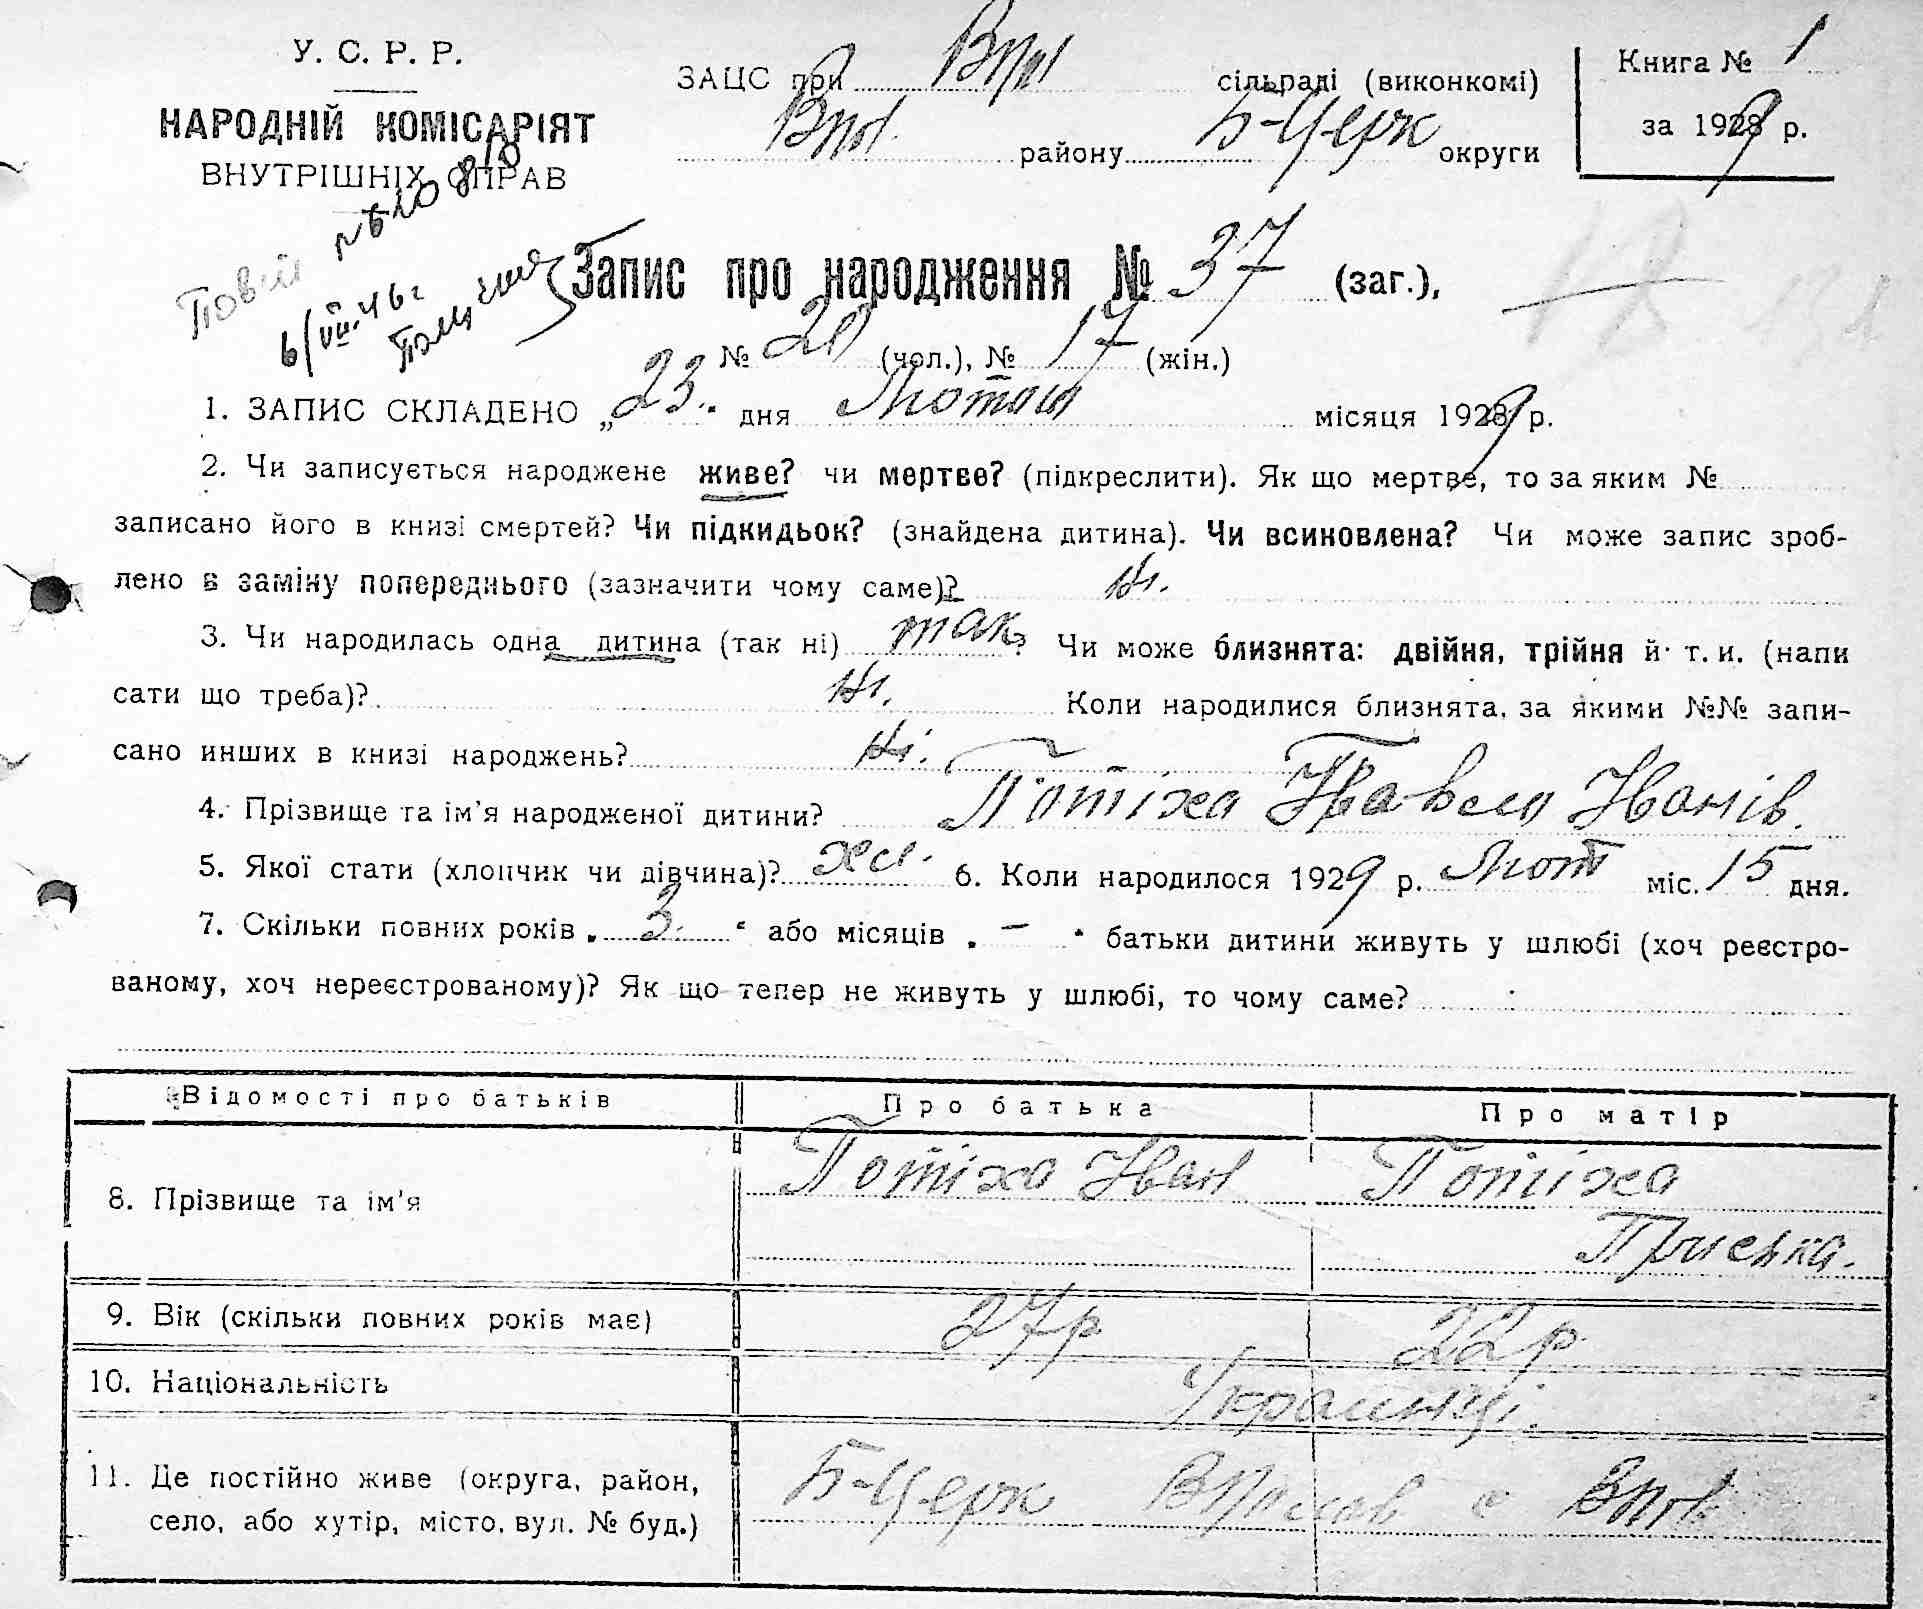 У. С. Р. Р.
НАРОДНІЙ КОМІСАРІЯТ
ВНУТРІШНІХ СПРАВ
ЗАЦС при сільраді (виконкомі)
району Б-Церк округи
Книга № 1
за 1929 р.
Запис про народження № 37 (заг.),
№ 20 (чол.), № 17 (жін.)
1. ЗАПИС СКЛАДЕНО „23" дня Лютого місяця 1929 р.
2. Чи записується народжене живе? чи мертве? (підкреслити). Як що мертве, то за яким №
записано його в книзі смертей? Чи підкидьок? (знайдена дитина). Чи всиновлена? Чи може запис зроб-
лено в заміну попереднього (зазначити чому саме)? Ні.
3. Чи народилась одна дитина (так ні) так? Чи може близнята: двійня, трійня й т. и. (напи
сати що треба)? Ні. Коли народилися близнята, за якими №№ запи-
сано инших в книзі народжень? Ні.
4. Прізвище та ім'я народженої дитини? Потіха Павло Іванів.
5. Якої стати (хлопчик чи дівчина)? хл. 6. Коли народилося 1929 р. Лют міс. 15 дня.
7. Скільки повних років „3" або місяців „—" батьки дитини живуть у шлюбі (хоч реєстро-
ваному, хоч нереєстрованому)? Як що тепер не живуть у шлюбі, то чому саме?
Відомості про батьків Про батька Про матір
8. Прізвище та ім'я Потіха Іван Потіха
Приська.
9. Вік (скільки повних років має) 27р 22р
10. Національність Українці.
11. Де постійно живе (округа, район, Б-Церк с
село, або хутір, місто, вул. № буд.)